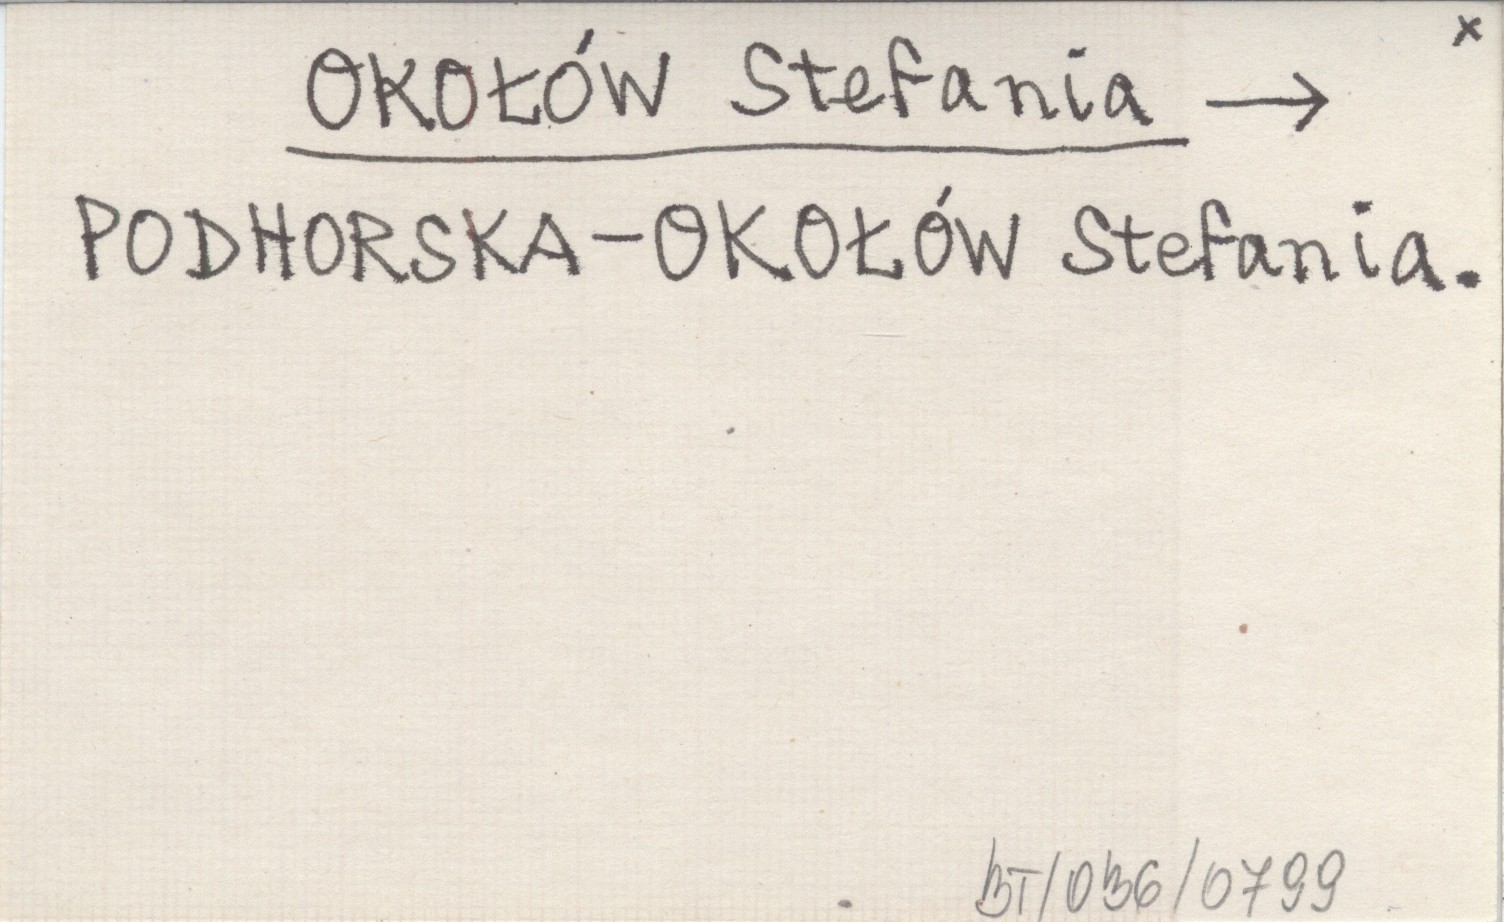 x
OKOŁÓW Stefania →
PODHORSKA-OKOŁÓW Stefania.
BT/036/0799